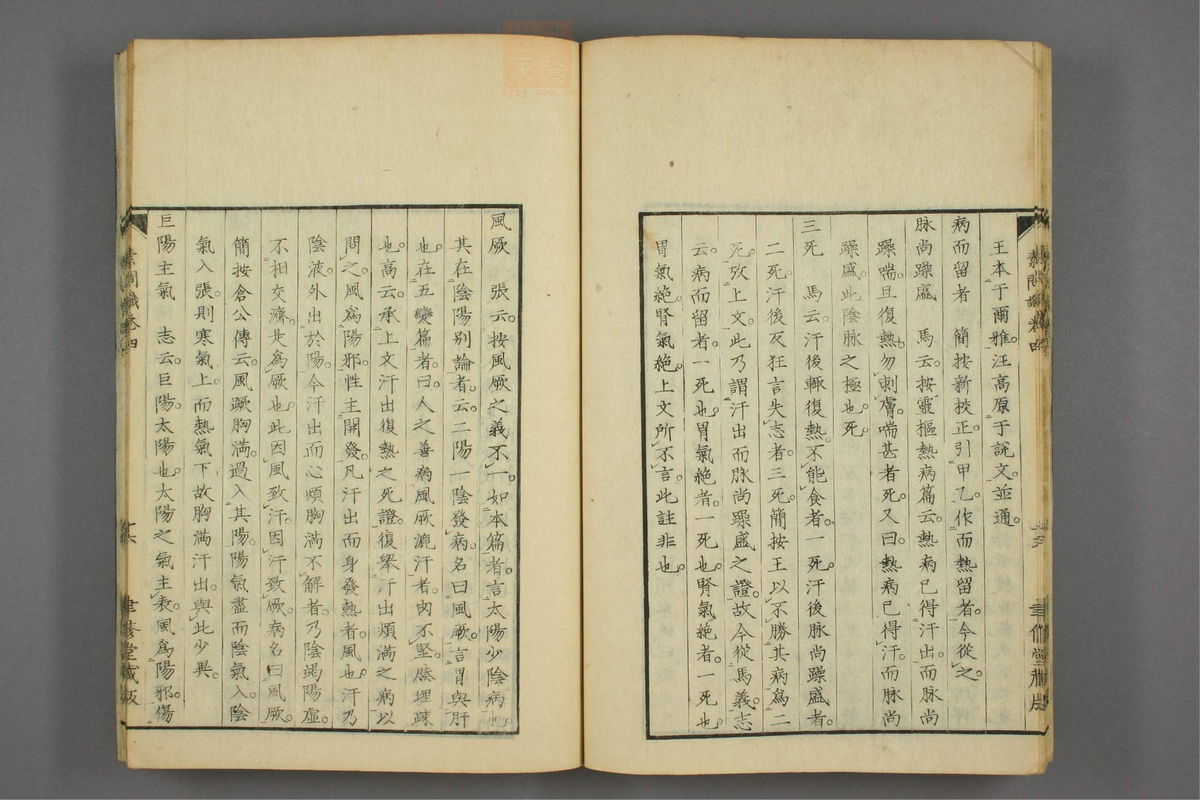 王本于爾雅。汪高原于說文。並通。
病而留者　簡按新挍正。引甲乙。作而熱留者。今從之。
脉尚躁盛　馬云。按靈樞熱病篇云。熱病已得汗出。而脉尚
躁喘。且復熱。勿刺膚。喘甚者死。又曰。熱病已得汗。而脉尚
躁盛。此陰脉之極也。死。
三死　馬云。汗後輒復熱。不能食者。一死。汗後脉尚躁盛者。
二死。汗後反狂言失志者。三死。簡按王以不勝其病爲二
死。攷上文。此乃謂汗出而脉尚躁盛之證。故今從馬義。志
云。病而留者。一死也。胃氣絶者。一死也。腎氣絶者。一死也。
胃氣絶。腎氣絶。上文所不言。此註非也。
素問識卷四
風厥　張云。按風厥之義不一。如本篇者。言太陽少陰病也。
其在陰陽別論者。云二陽一陰發病。名曰風厥。言胃與肝
也。在五變篇者。曰人之善病風厥漉汗者。肉不堅。腠理踈
也。高云。承上文汗出復熱之死證。復舉汗出煩満之病以
問之。風爲陽邪。性主開發。凡汗出而身發熱者。風也。汗乃
陰液。外出於陽。今汗出而心煩胸満不解者。乃陰竭陽虛。
不相交濟。是爲厥也。此因風致汗。因汗致厥。病名曰風厥。
簡按倉公傳云。風蹶胸満。過入其陽。陽氣盡而陰氣入。陰
氣入張。則寒氣上。而熱氣下。故胸満汗出。與此少異。
巨陽主氣　志云。巨陽。太陽也。太陽之氣主表。風爲陽邪。傷
素問識卷四
十六
聿修堂藏版